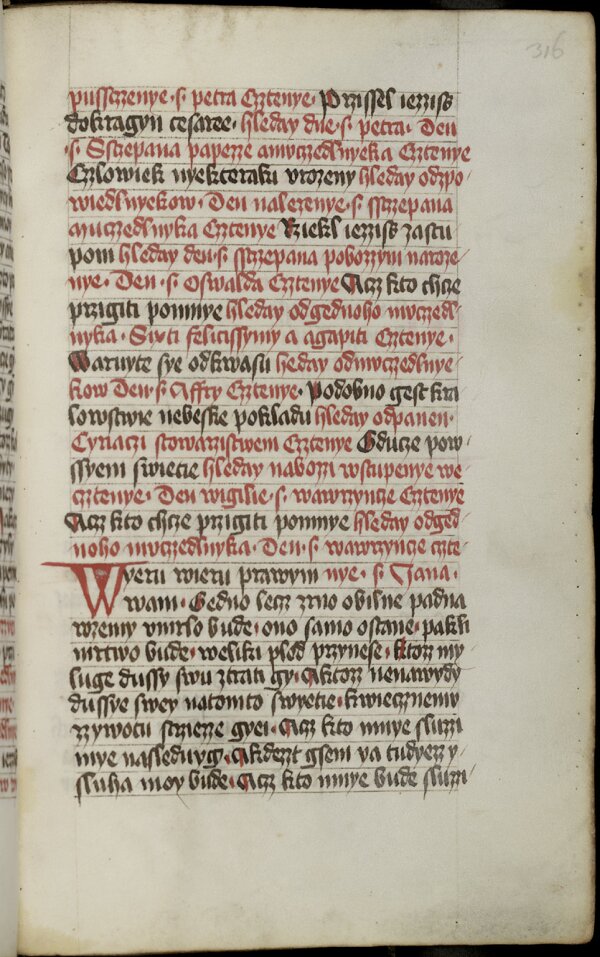 316
pusstzenye · s · petra Cztenye · Przissel iezziss
dokragyn cesaree · hleday dne · s · petra · Den
· s · Sstzepana papezze amuczedlnyeka Cztenye
Czlowiek nyekteraku urozeny hleday odzpo
wiedlnyekow · Den nalezenye · s · sstzepana
muczedlnyka Cztenye Rziekl iezziss zastu
pom hleday den · s · sstzepana pobozzym naroze
nye · Den · s · Oswalda Cztenye Acz kto chcze
przigiti pomnye hleday odgednoho muczedl
nyka · Sixti felicissymy a agapiti Cztenye ·
Waruyte sye odkwasu heday odmuczedlnye
kow Den · s · Affry Cztenye · Podobno gest kra
lowstwie nebeske pokladu hleday odpanen ·
Cyriaczi stowarzistwem Cztenye Gducze pow
ssyem swietie hleday nabozi wstupenye we
cztenye · Den wigilie · s · wawrzyncze Cztenye
Acz kto chcze przigiti pomnye hleday odged
noho muczedlnyka · Den · s · wawrzyncze czte
Wyeru wieru prawym nye · s · Jana ·
wam · Gedno lecz zrno obilne padna
wzemy umrlo bude · ono samo ostane · pakli
mrtwo bude · weliki plod przynese · Ktoz my
luge dussy swu ztrati gy · Aktoz nenawydy
dussye swey natomto swyetie · kwiecznemu
zzywotu strzeze gyei · Acz kto mnye sluzi
mye nasleduygy · Akdezt gsem ya tudyezz y
sluha moy bude · Acz kto mnye bude sluzi